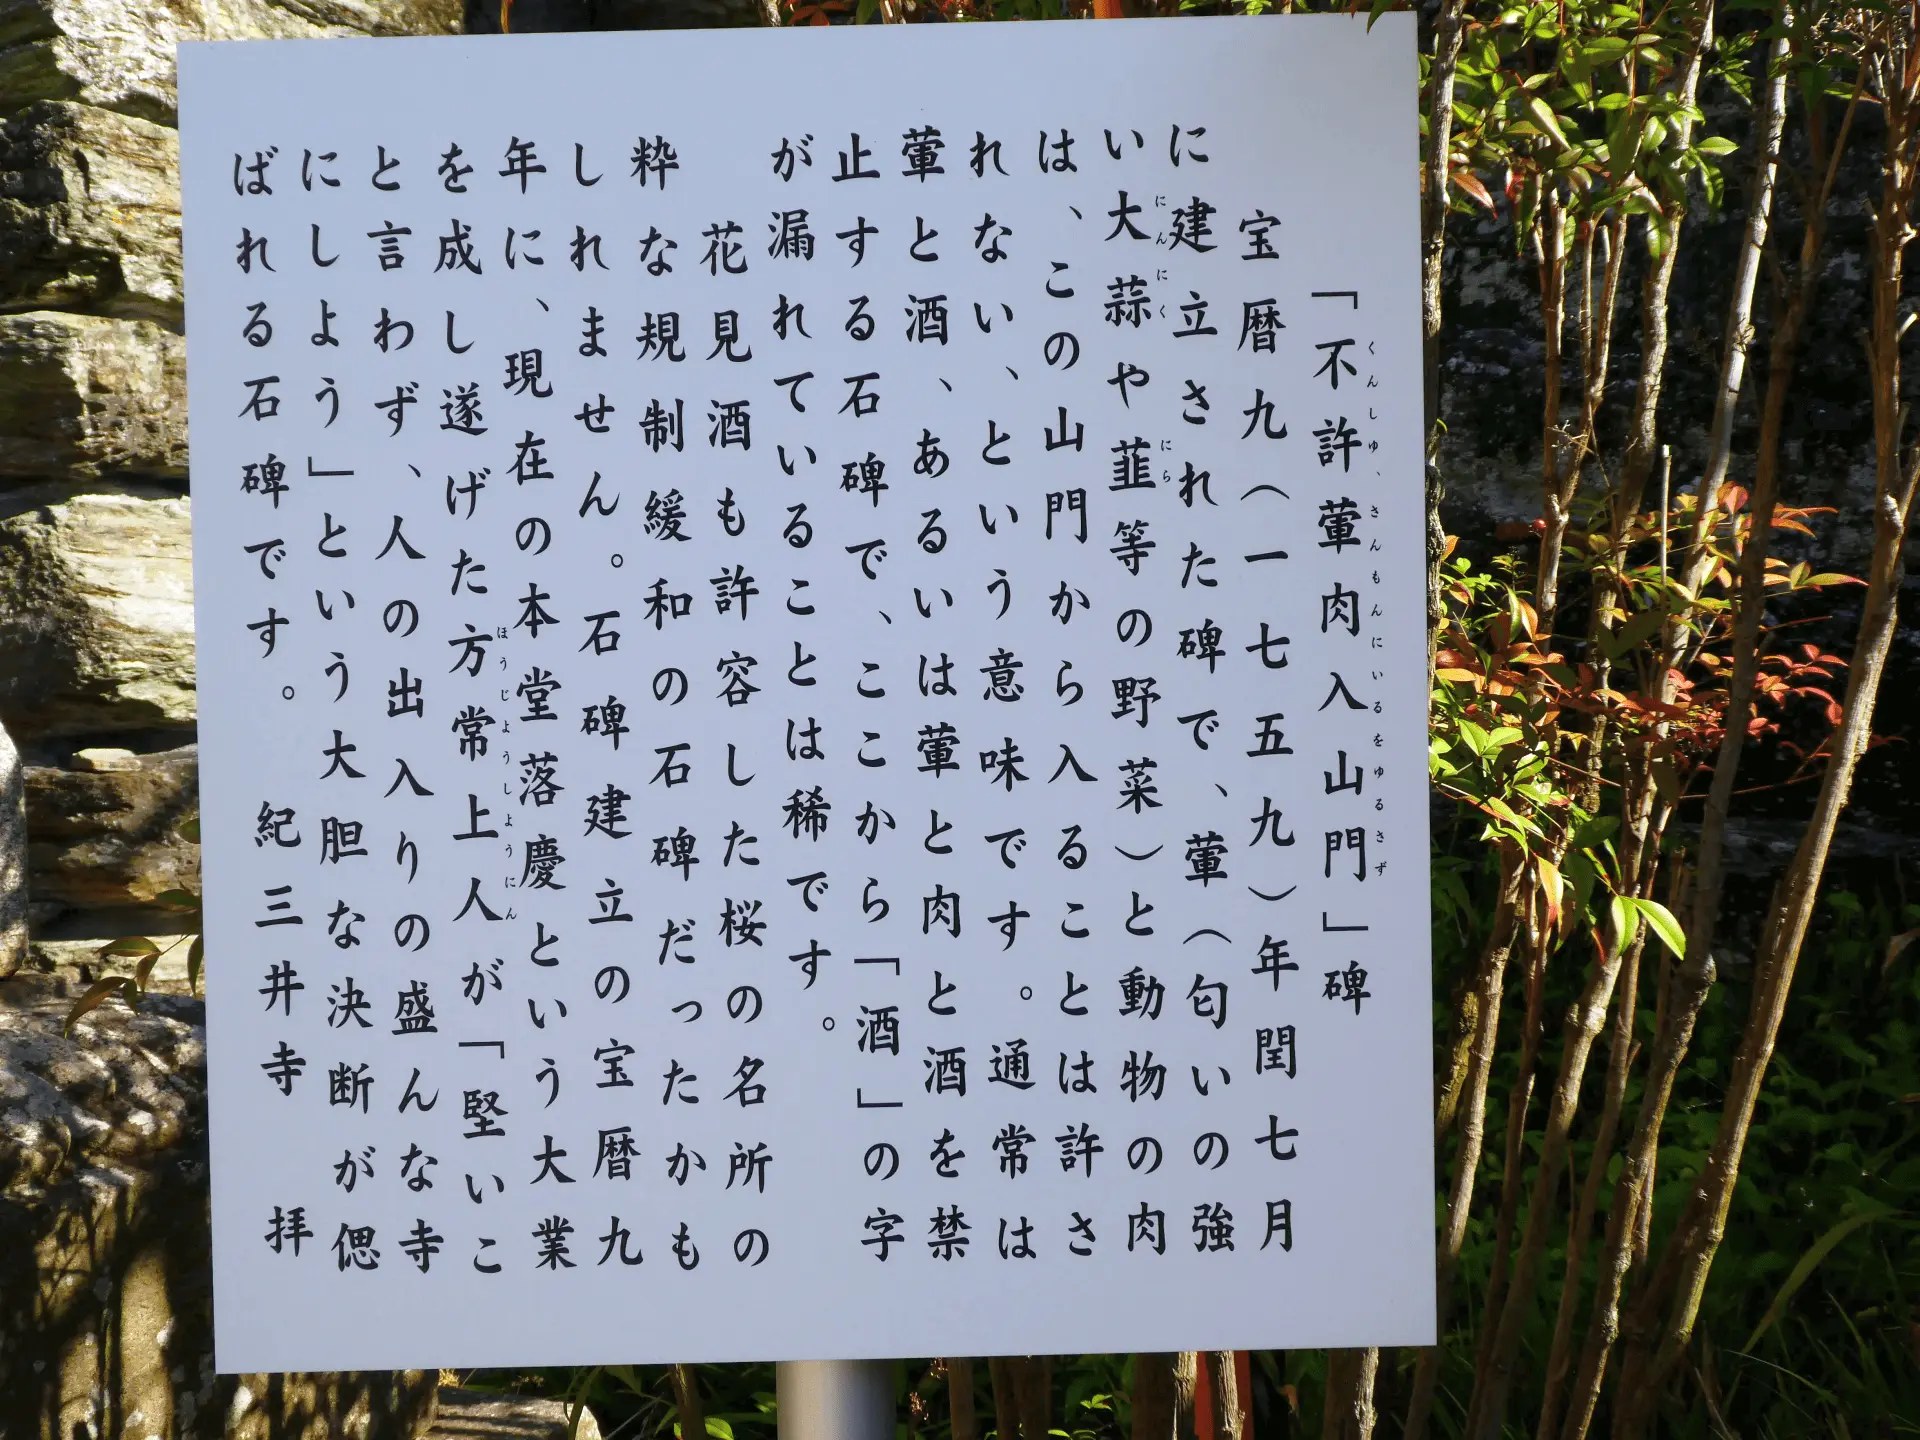 「不許葷肉入山門」碑
くんしゅ、さんもんにいるをゆるさず
宝暦九(一七五九)年閏七月
に建立された碑で、葷(匂いの強
い大蒜や韮等の野菜)と動物の肉
にんにく
にら
は、この山門から入ることは許さ
れない、という意味です。通常は
葷と酒、あるいは葷と肉と酒を禁
止する石碑で、ここから「酒」の字
が漏れていることは稀です。
花見酒も許容した桜の名所の
粋な規制緩和の石碑だったかも
しれません。石碑建立の宝暦九
年に、現在の本堂落慶という大業
を成し遂げた方常上人が「堅いこ
ほうじようしようにん
と言わず、人の出入りの盛んな寺
にしよう」という大胆な決断が偲
ばれる石碑です。 紀三井寺 拝